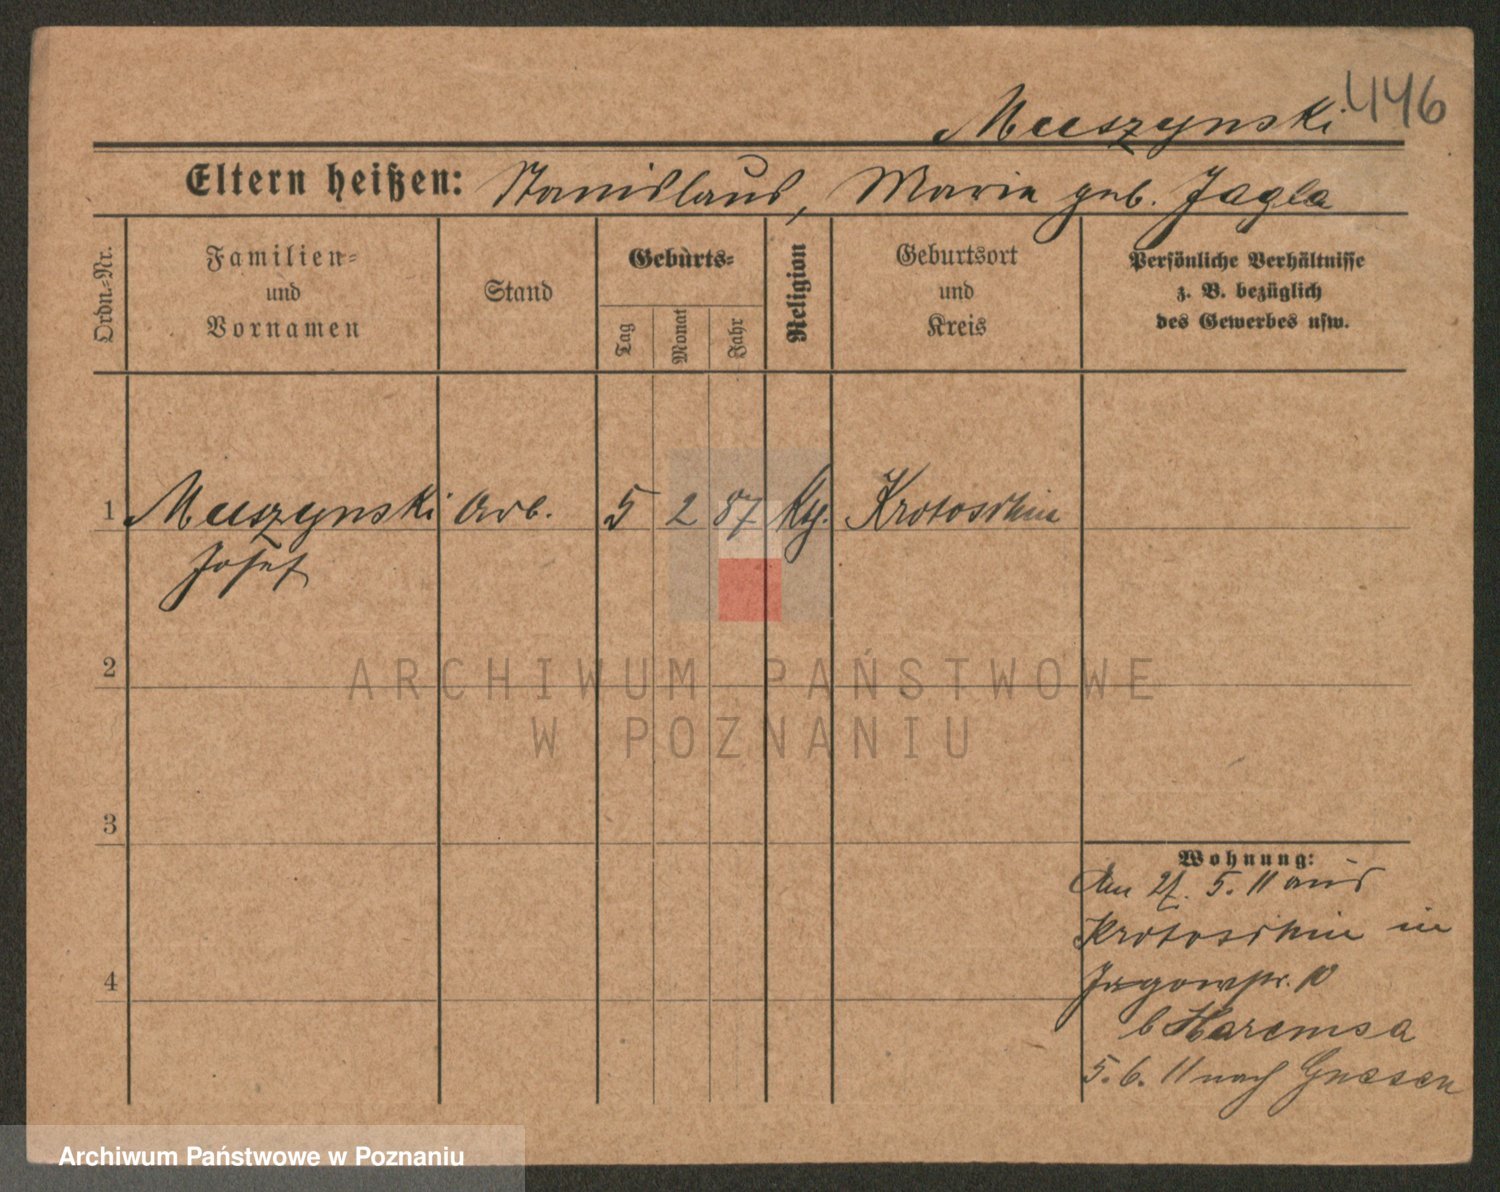 Muszynski 446
Eltern heißen: Stanislaus, Marie geb. Jagla
Ordn.-Nr.
Familien-
und
Vornamen
Stand
Geburts-
Tag
Monat
Jahr
Religion
Geburtsort
und
Kreis
Persönliche Verhältnisse
z. B. bezüglich
des Gewerbes usw.
1 Muszynski Arb. 5 2 87 kth. Krotoschin
Josef
2
ARCHIWUM PAŃSTWOWE
W POZNANIU
3
4
Wohnung:
Am 27. 5. 11 aus
Krotoschin in
Jagowstr. 10
b Haremsa
5. 6. 11 nach Gnesen
Archiwum Państwowe w Poznaniu